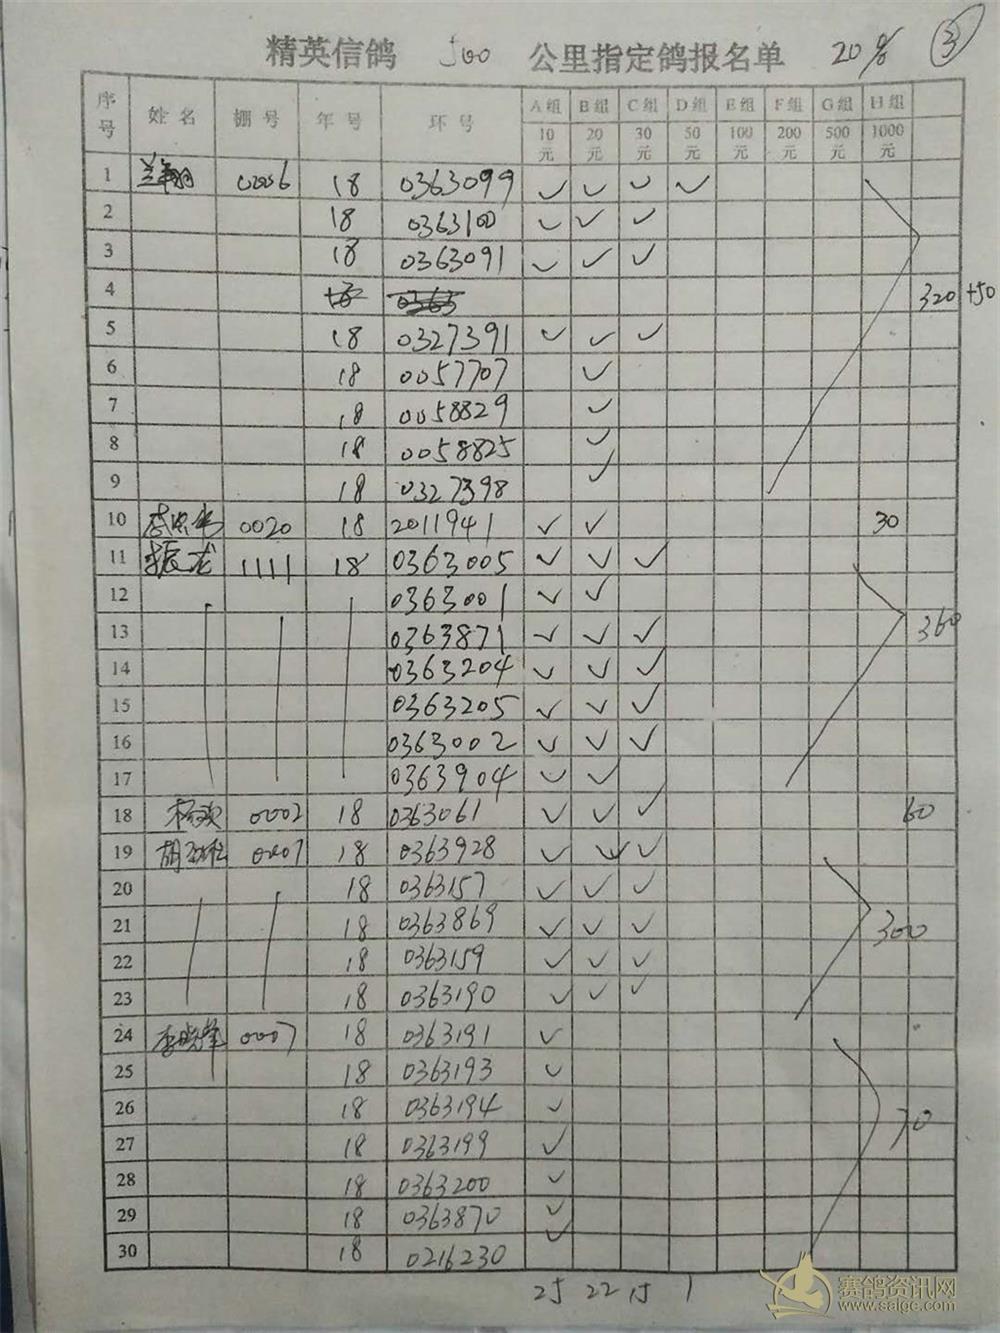 精英信鸽 500 公里指定鸽报名单 20% ③
序号 姓名 棚号 年号 环号 A组 B组 C组 D组 E组 F组 G组 H组
10元 20元 30元 50元 100元 200元 500元 1000元
1 兰翔 18 0363099 ✓ ✓ ✓ ✓
2 18 0363100 ✓ ✓ ✓
3 18 0363091 ✓ ✓ ✓
4 0363 320 +50
5 18 0327391 ✓ ✓ ✓
6 18 0057707 ✓
7 18 0058829 ✓
8 18 0058825 ✓
9 18 0327398 ✓
10 0020 18 2011941 ✓ ✓ 30
11 振龙 1111 18 0363005 ✓ ✓ ✓
12 0363001 ✓ ✓
13 0363871 ✓ ✓ ✓ 360
14 0363204 ✓ ✓ ✓
15 0363205 ✓ ✓ ✓
16 0363002 ✓ ✓ ✓
17 0363904 ✓ ✓
18 杨欢 0002 18 0363061 ✓ ✓ ✓ 60
19 胡劲松 18 0363928 ✓ ✓ ✓
20 18 0363157 ✓ ✓ ✓
21 18 0363869 ✓ ✓ ✓ 300
22 18 0363159 ✓ ✓ ✓
23 18 0363190 ✓ ✓ ✓
24 李晓峰 0007 18 0363191 ✓
25 18 0363193 ✓
26 18 0363194 ✓ 70
27 18 0363199 ✓
28 18 0363200 ✓
29 18 0363870 ✓
30 18 0216230 ✓
25 22 15 1
赛鸽资讯网
www.saige.com